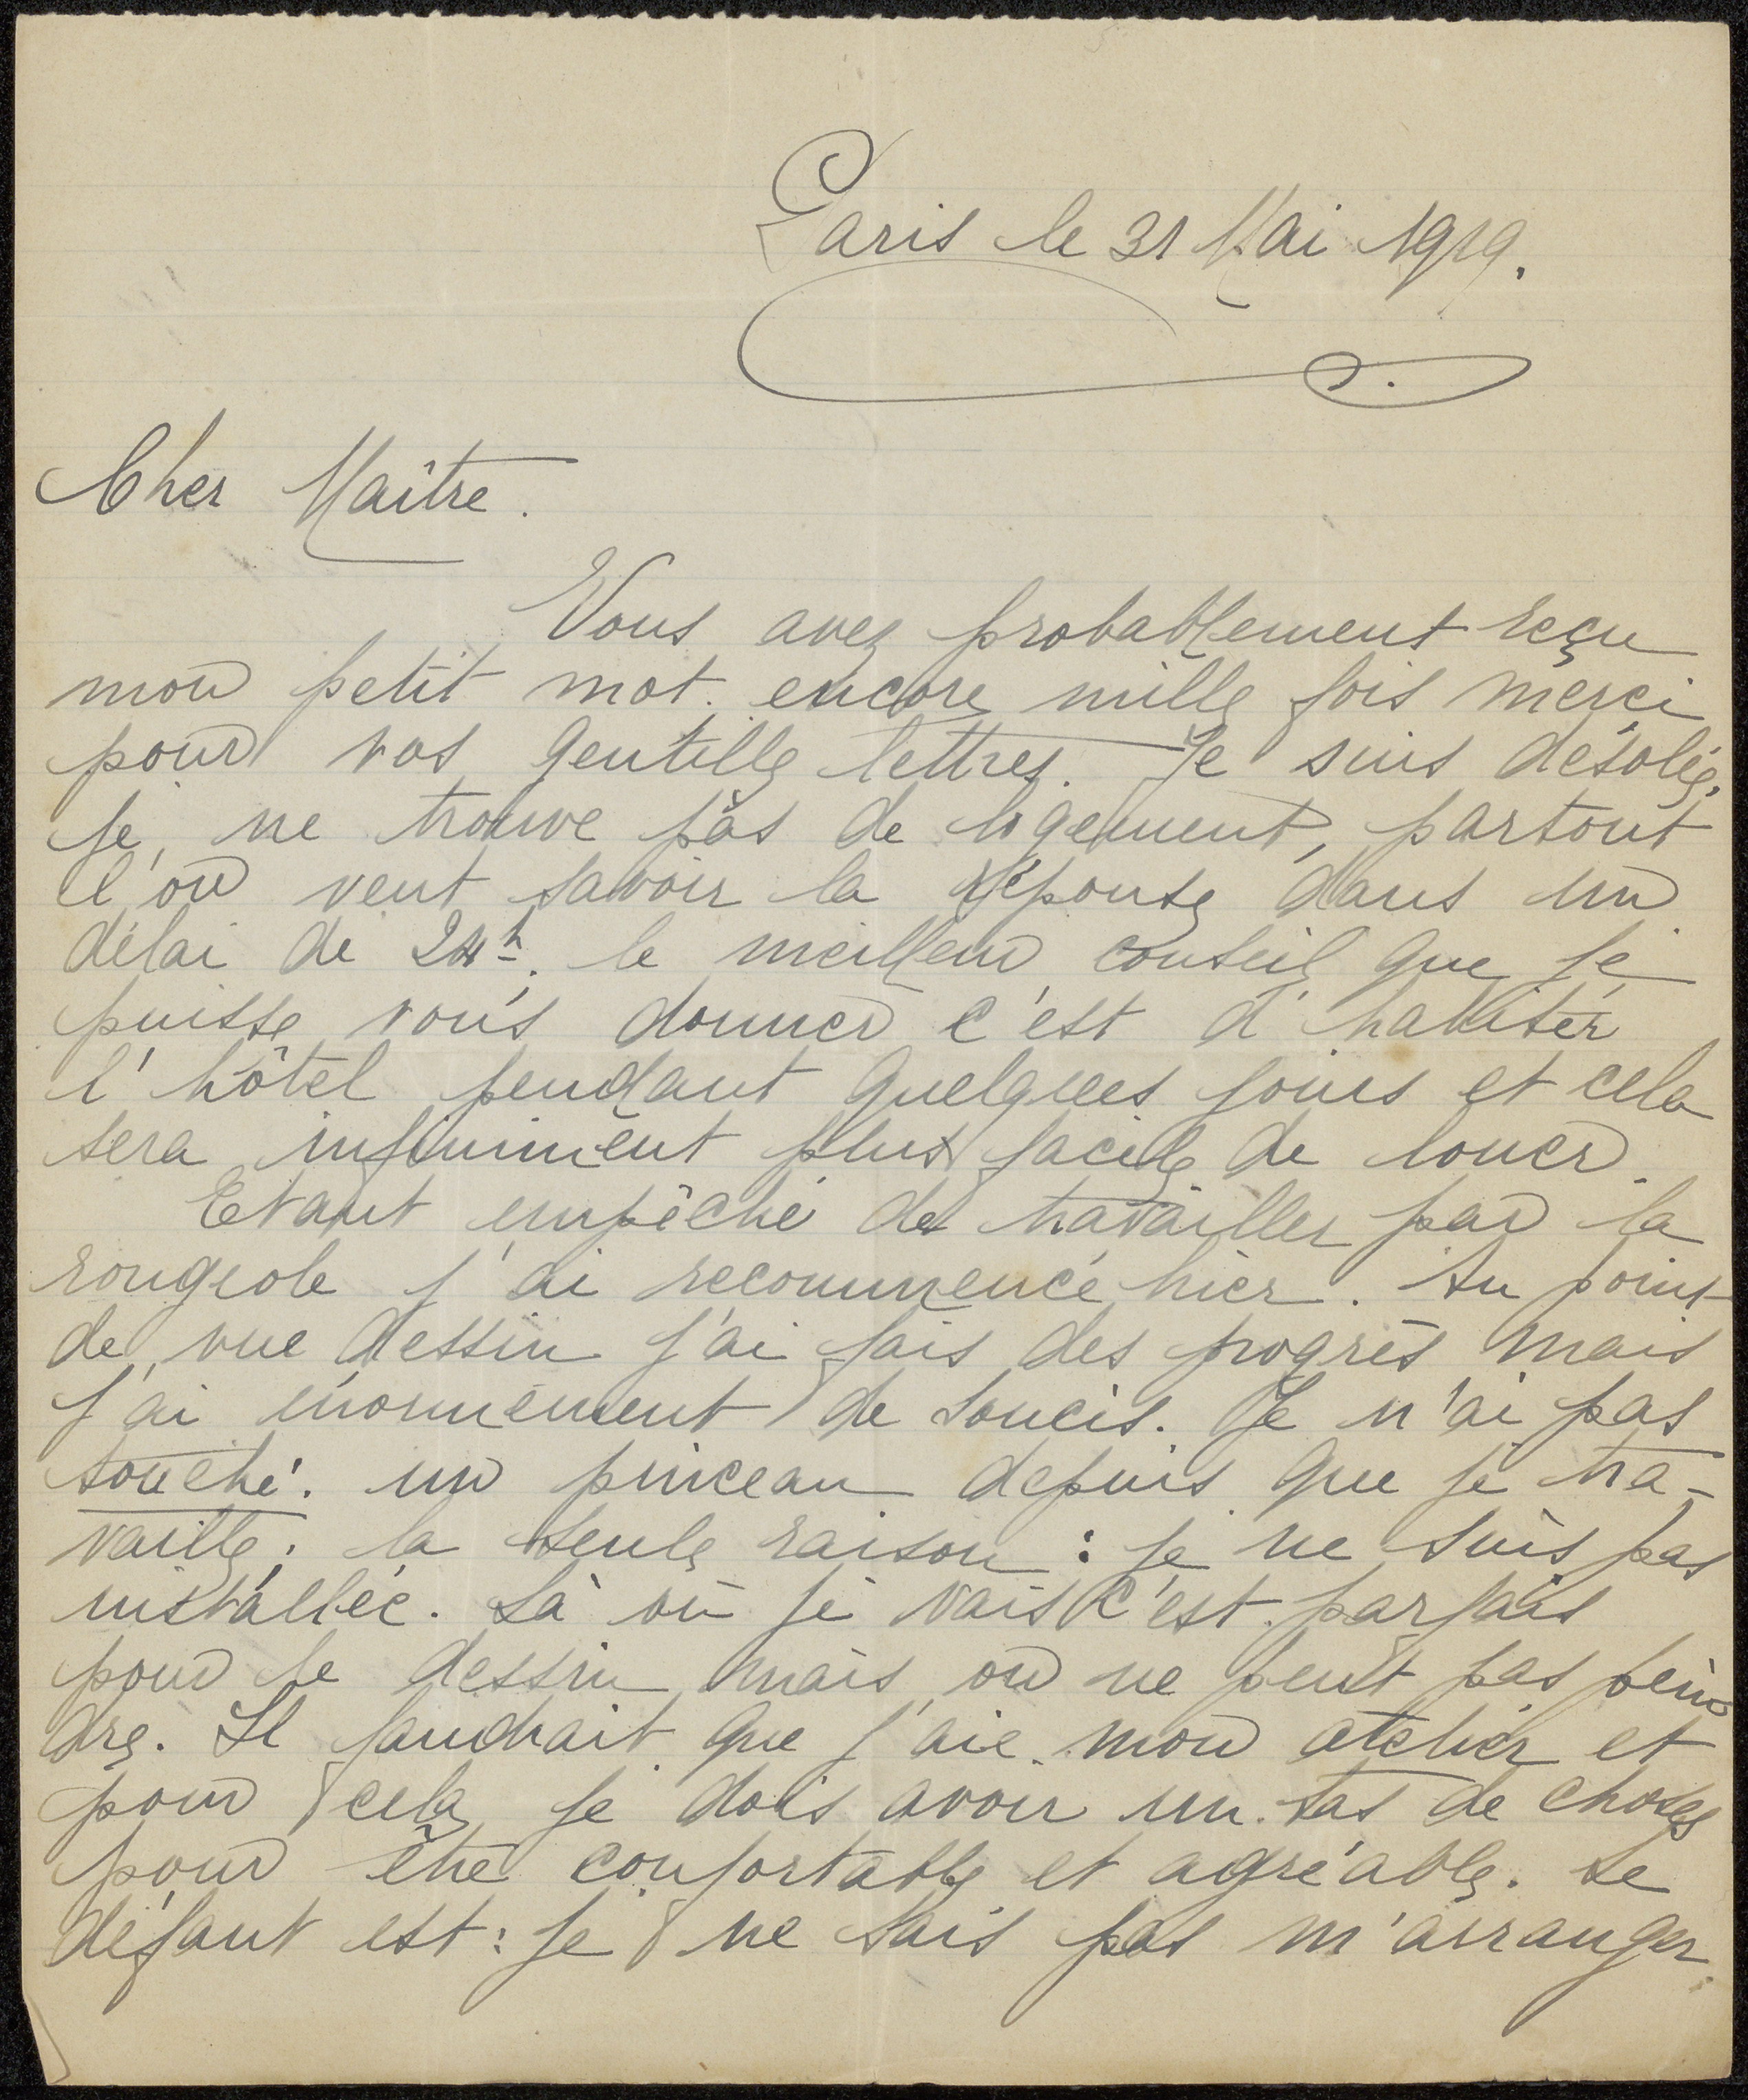 Paris le 31 Mai 1919.
Cher Maître.
Vous avez probablement reçu
mon petit mot. encore mille fois merci
pour vos gentille lettres. Je suis désolée,
je ne trouve pas de logement, partout
l'on veut savoir la réponse dans un
délai de 24h. le meilleur conseil que je
puisse vous donner c'est d'habiter
l'hôtel pendant quelques jours et cela
sera infiniment plus facile de louer.
Etant empêché de travailler par la
rougeole j'ai recommencé hier. Au point
de vue dessin j'ai fais des progrès mais
j'ai énormément de soucis. Je n'ai pas
touché un pinceau depuis que je tra-
vaille, la seule raison : je ne suis pas
installée. Là où je vais c'est parfais
pour le dessin mais on ne peut pas pein
dre. Il faudrait que j'aie mon atelier et
pour cela je dois avoir un tas de choses
pour être confortable et agréable. Le
défaut est : je ne sais pas m'arranger.